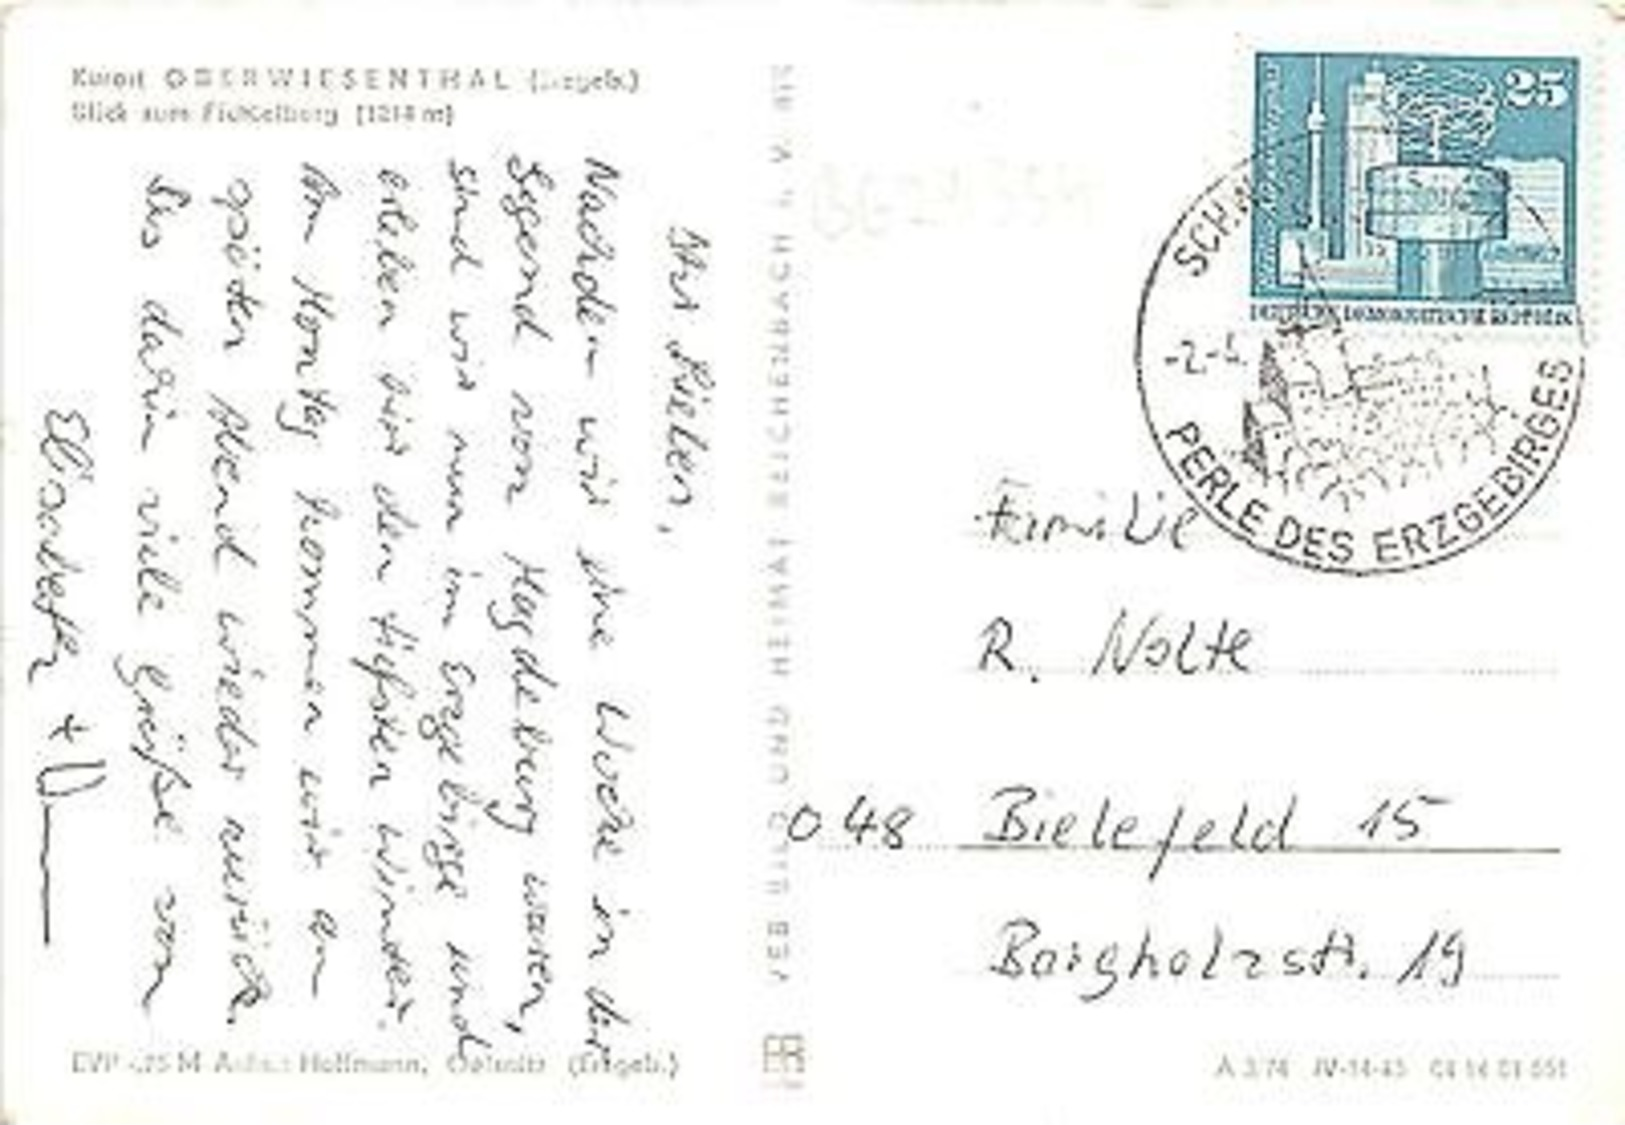 Kurort OBERWIESENTHAL (Erzgeb.)
Blick zum Fichtelberg (1214 m)
Ihr Lieben,
Nachdem wir eine Woche in der
Gegend von Magdeburg waren,
sind wir nun im Erzgebirge und
erleben hier den tiefsten Winter.
Am Montag kommen wir am
späten Abend wieder zurück.
Bis dahin viele Grüße von
Elisabeth +
EVP -,25 M Aufn.: Hoffmann, Oelsnitz (Erzgeb.)
VEB BILD UND HEIMAT REICHENBACH I. V.
25
DEUTSCHE DEMOKRATISCHE REPUBLIK
PERLE DES ERZGEBIRGES
Familie
R. Nolte
048 Bielefeld 15
Bargholzstr. 19
A 3/74 IV-14-45